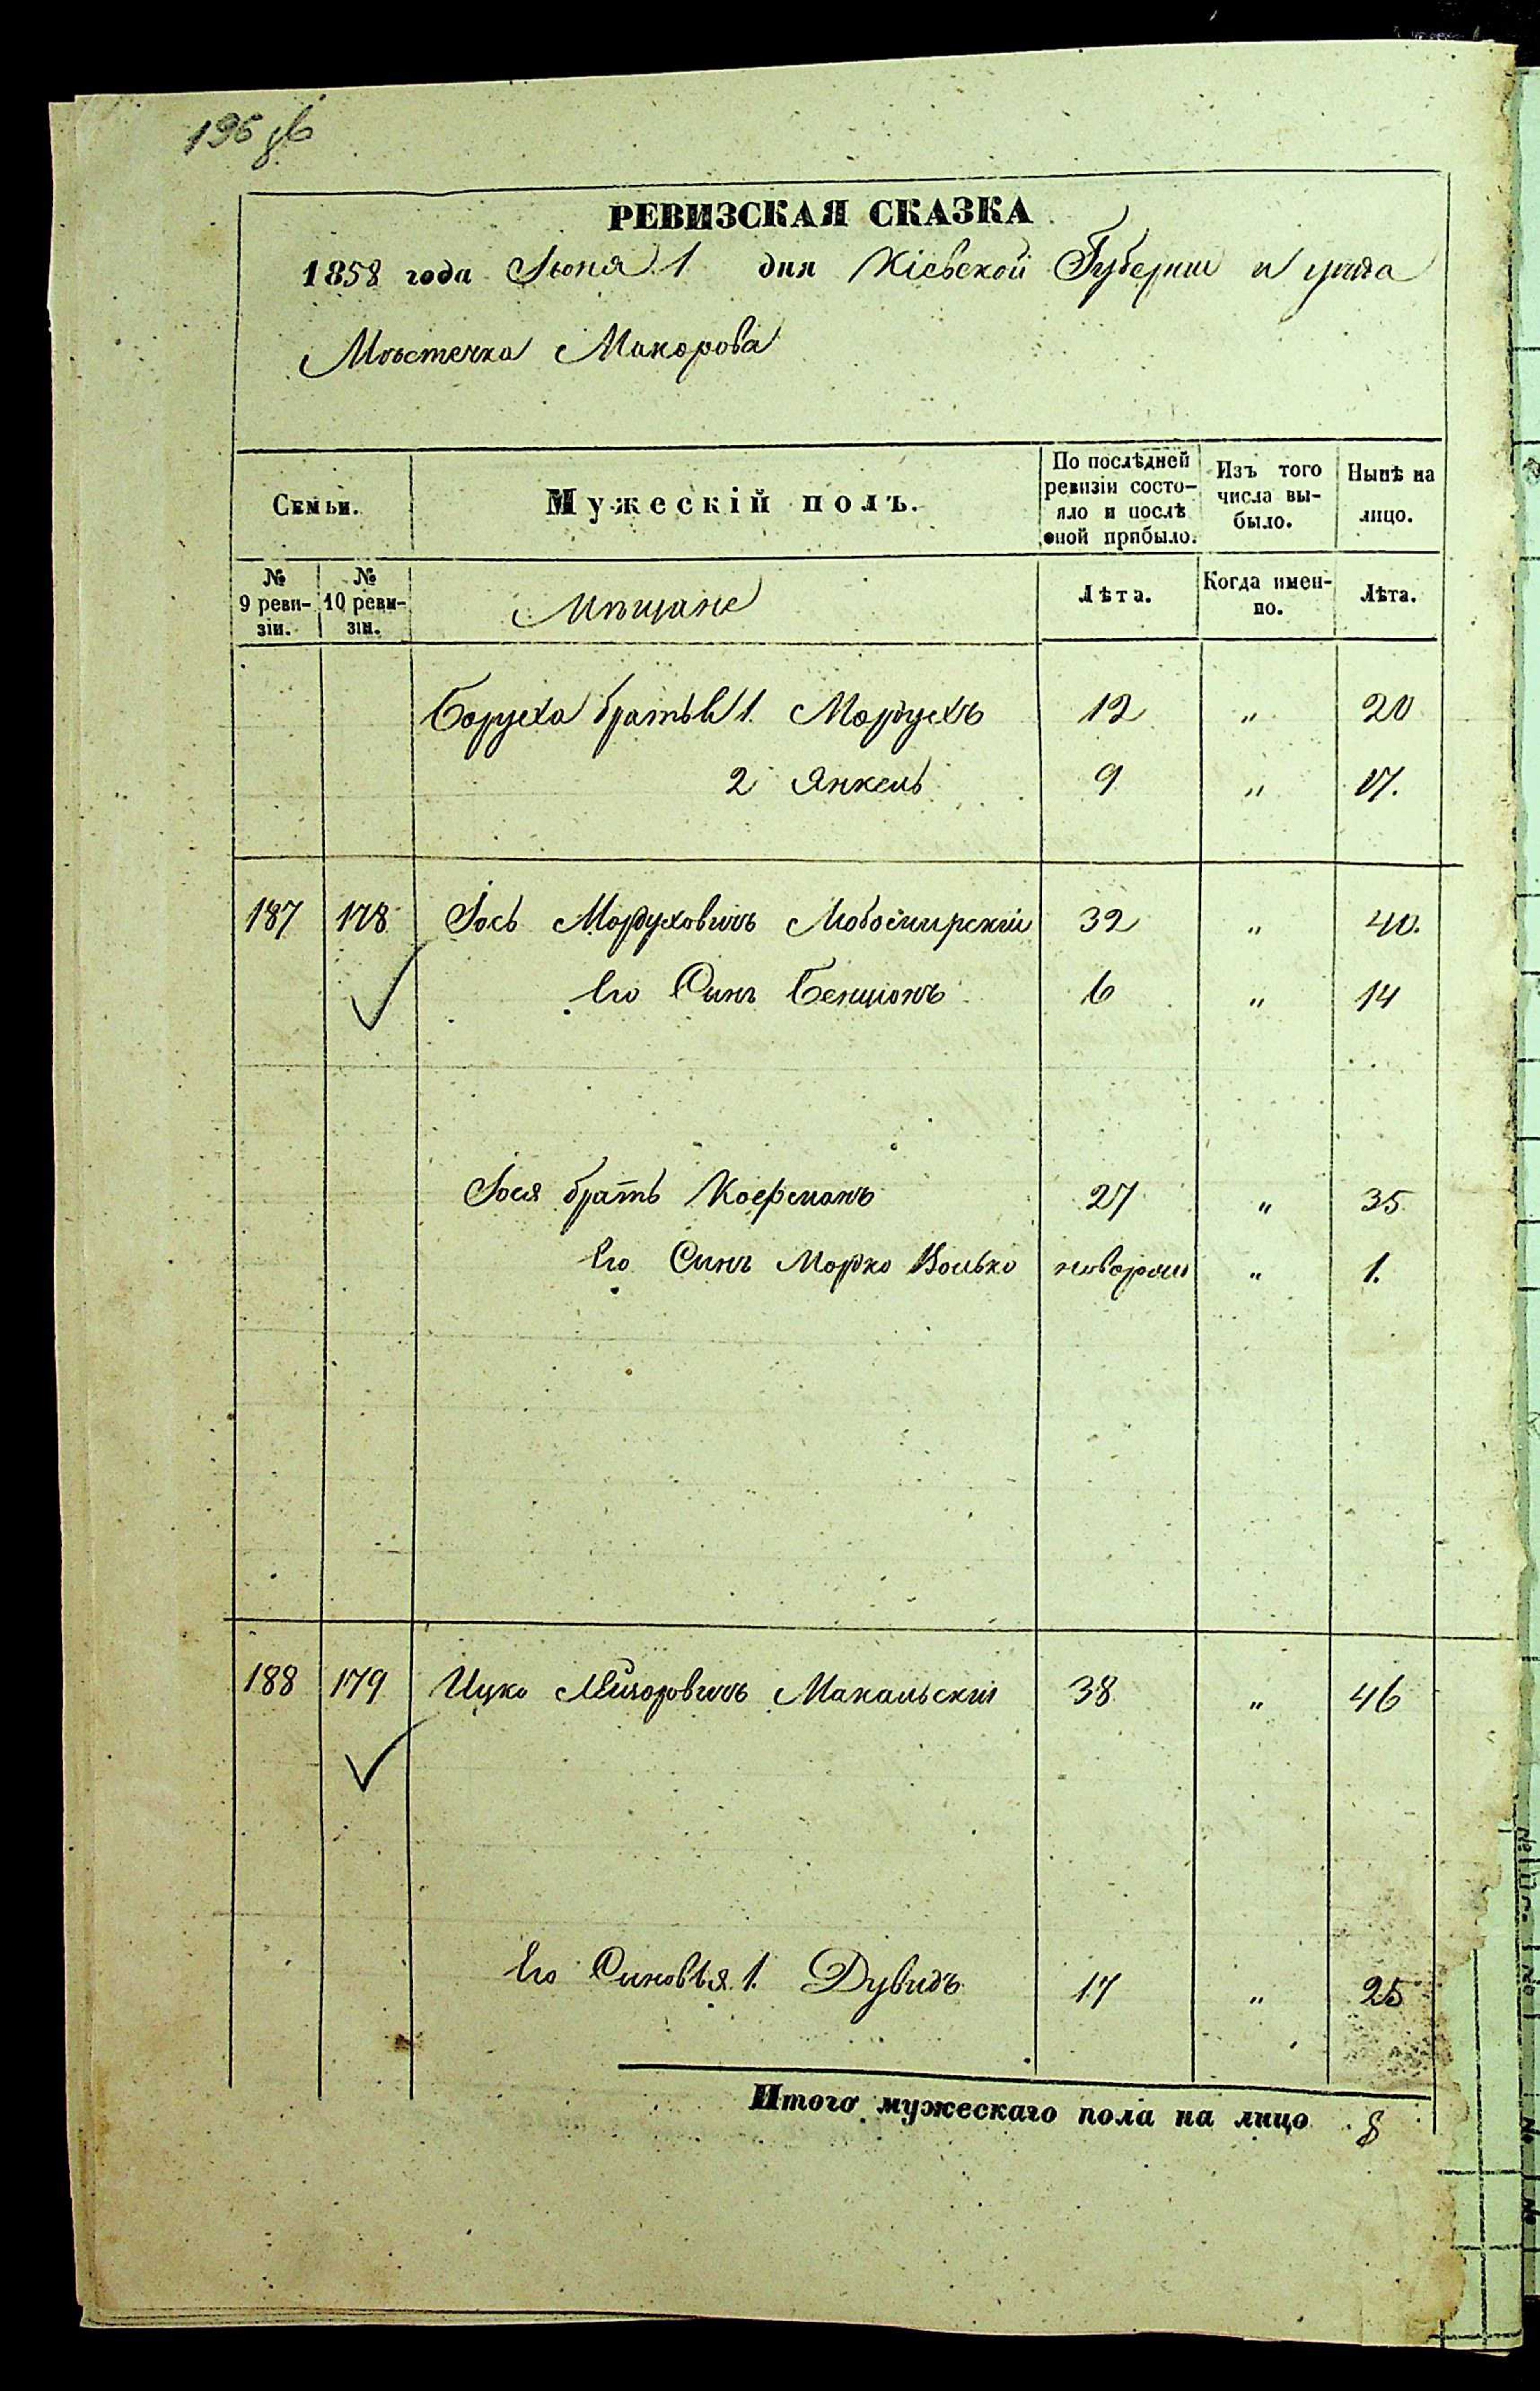 РЕВИЗСКАЯ СКАЗКА
1858 года Іюня 1 дня Кіевской Губерніи и уѣзда
Мѣстечка Макорова
Семьи. Мужескій полъ. По послѣдней ревизіи состояло и послѣ оной прибыло. Изъ того числа выбыло. Нынѣ на лицо.
№ 9 ревизіи. № 10 ревизіи. Мѣщане Лѣта. Когда именно. Лѣта.
Боруха братья 1. Мордухъ 12 " 20
2 Янкель 9 " 17.
187 178 Іось Мордуховичъ 32 " 40.
Его Синъ Бенціонъ 6 " 14
Іося братъ 27 " 35
Его Синъ Морко Волько новорож " 1.
188 179 Ицко Макальскій 38 " 46
Его Синовья 1. Дувидъ 17 " 25
Итого мужескаго пола на лицо 8